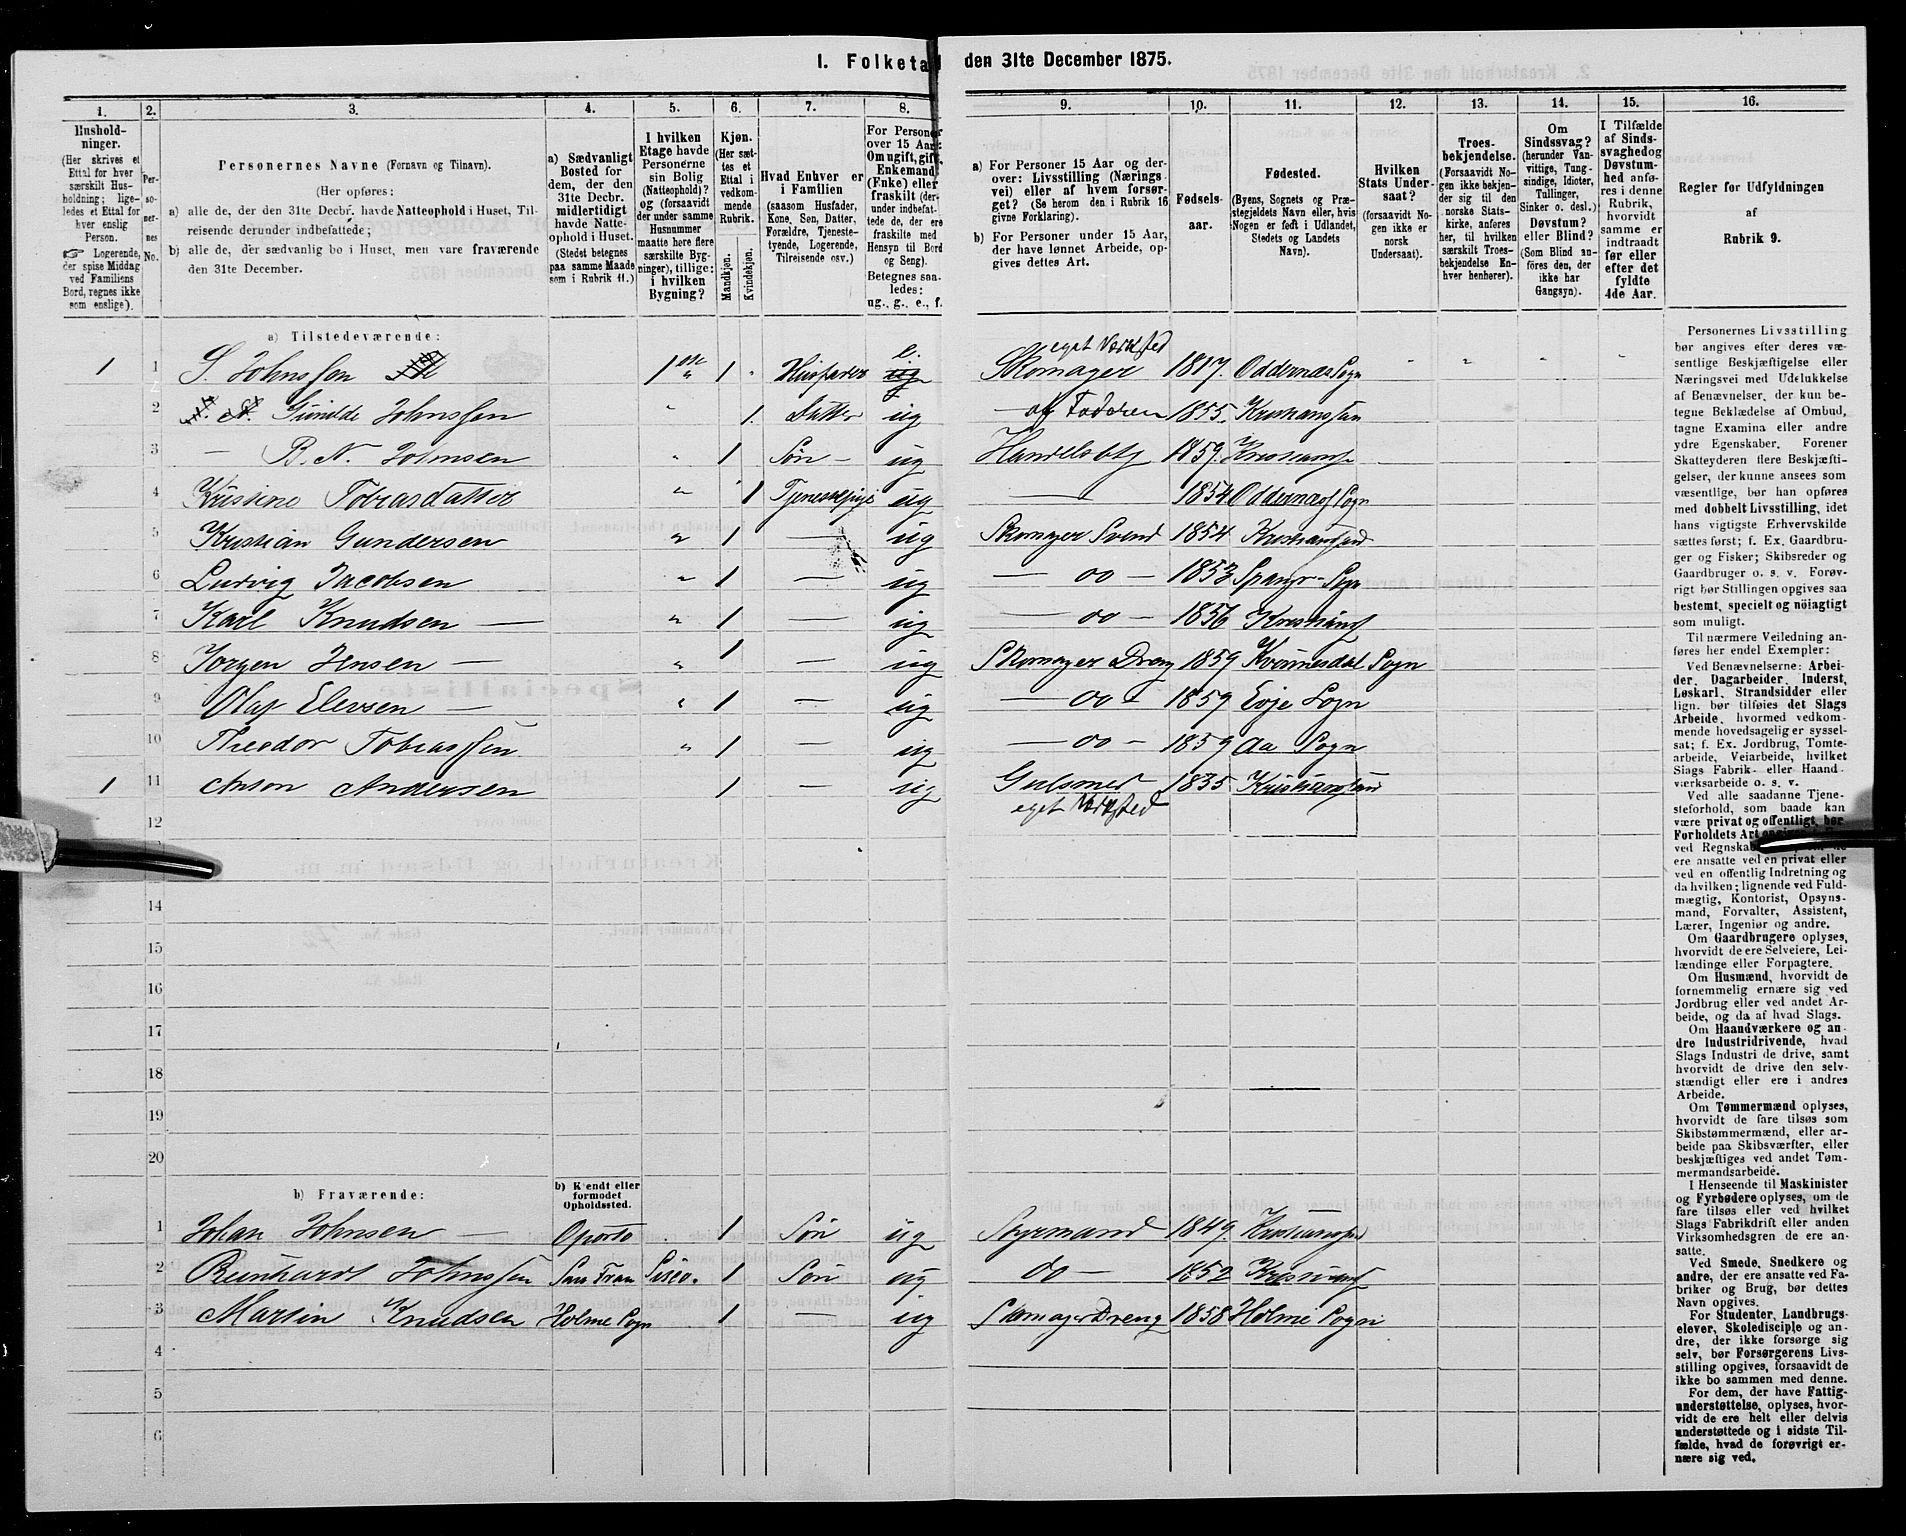 I. Folketal den 31te December 1875.
1. 2. 3. 4. 5. 6. 7. 8. 9. 10. 11. 12. 13. 14. 15. 16.
Hushold-
ninger.
(Her skrives et
Ettal for hver
særskilt Hus-
holdning; lige-
ledes et Ettal for
hver enslig
Person.
☞ Logerende,
der spise Middag
ved Familiens
Bord, regnes ikke
som enslige).
Per-
so-
ner-
nes
No.
Personernes Navne (Fornavn og Tilnavn).
(Her opføres:
a) alle de, der den 31te Decbr. havde Natteophold i Huset, Til-
reisende derunder indbefattede;
b) alle de, der sædvanlig bo i Huset, men vare fraværende
den 31te December.
a) Sædvanligt
Bosted for
dem, der den
31te Decbr.
midlertidigt
havde Natte-
ophold i Huset.
(Stedet betegnes
paa samme Maade
som i Rubrik 11.)
I hvilken
Etage havde
Personerne
sin Bolig
(Natteophold)?
og (forsaavidt
der under samme
Husnummer
maatte høre flere
særskilte Byg-
ninger), tillige:
i hvilken
Bygning?
Kjøn.
(Her sæt-
tes et
Ettal i
vedkom-
mende
Rubrik.
Mandkjøn.
Kvindekjøn.
Hvad Enhver er
i Familien
(saasom Husfader,
Kone, Søn, Datter,
Forældre, Tjeneste-
tyende, Logerende,
Tilreisende osv.)
For Personer
over 15 Aar:
Om ugift, gift,
Enkemand
(Enke) eller
fraskilt (der-
under indbefat-
tede de, der ere
fraskilte med
Hensyn til Bord
og Seng).
Betegnes saa-
ledes:
ug., g., e., f.
a) For Personer 15 Aar og der-
over: Livsstilling (Nærings-
vei) eller af hvem forsør-
get? (Se herom den i Rubrik 16
givne Forklaring).
b) For Personer under 15 Aar,
der have lønnet Arbeide, op-
gives dettes Art.
Fødsels-
aar.
Fødested.
(Byens, Sognets og Præ-
stegjeldets Navn eller, hvis
Nogen er født i Udlandet,
Stedets og Landets
Navn).
Hvilken
Stats Under-
saat?
(forsaavidt No-
gen ikke er
norsk
Undersaat).
Troes-
bekjendelse.
(Forsaavidt No-
gen ikke bekjen-
der sig til den
norske Stats-
kirke, anføres
her, til hvilken
særskilt Troes-
bekjendelse En-
hver henhører).
Om
Sindssvag?
(herunder Van-
vittige, Tung-
sindige, Idioter,
Tullinger,
Sinker o. desl.)
Døvstum?
eller Blind?
(Som Blind an-
føres den, der
ikke har
Gangsyn).
I Tilfælde
af Sinds-
svaghed og
Døvstum-
hed anfø-
res i denne
Rubrik,
hvorvidt
samme er
indtraadt
før eller
efter det
fyldte
4de Aar.
Regler for Udfyldningen
af
Rubrik 9.
a) Tilstedeværende:
e. eget Værksted
1 1 S. Johnssen 1ste 1 Husfader ug Skomager 1817. Oddernæs Sogn
2 Gunilde Johnssen 1. Datter ug af Faderen 1855. Kristianssan
3 — B. N. Johnsen 1 Søn — ug Handelsbtj 1859. Kristiansa
4 Kristine Tobiasdatter 1 Tjenestepige ug — 1854. Oddernæs Sogn
5 Kristian Gundersen 1 — ug Skomager Svend 1854 Kristiansand
6 Ludvig Jacobsen 1 — ug — do — 1853 Spangr. Sogn
7 Karl Knudsen — 1 — ug — do — 1856 Kristians
8 Jørgen Jensen — 1 — ug Skomager Dreng 1859 Kvinnesdal Sogn
9 Olaf Elevsen — 1 — ug — do — 1859 Evje Sogn
10 Theodor Tobiassen 1 — ug — do — 1859 Aa Sogn
1 11 Anton Andersen 1 — ug Gulsmed 1835 Kristiansand
eget Værksted
12
14
15
16
17
18
19
20
b) Fraværende:
b) Kendt eller
formodet
Opholdssted.
1 Johan Johnsen — Oporto 1 Søn ug Styrmand 1849. Kristiansan
2 Reinhardt Johnssen San Fran Sisco. 1 Søn ug do — 1852 Kristians
3 Martin Knudsen Holme Sogn 1 — ug Skomager Dreng 1858 Holme Sogn
4
5
6
Personernes Livsstilling
bør angives efter deres væ-
sentlige Beskjæftigelse eller
Næringsvei med Udelukkelse
af Benævnelser, der kun be-
tegne Beklædelse af Ombud,
tagne Examina eller andre
ydre Egenskaber. Forener
Skatteyderen flere Beskjæfti-
gelser, der kunne ansees som
væsentlige, bør han opføres
med dobbelt Livsstilling, idet
hans vigtigste Erhvervskilde
sættes først; f. Ex. Gaardbru-
ger og Fisker; Skibsreder og
Gaardbruger o. s. v. Forøv-
rigt bør Stillingen opgives saa
bestemt, specielt og nöiagtigt
som muligt.
Til nærmere Veiledning an-
føres her endel Exempler:
Ved Benævnelserne: Arbei-
der, Dagarbeider, Inderst,
Løskarl, Strandsidder eller
lign. bør tilføies det Slags
Arbeide, hvormed vedkom-
mende hovedsagelig er syssel-
sat; f. Ex. Jordbrug, Tomte-
arbeide, Veiarbeide, hvilket
Slags Fabrik- eller Haand-
værksarbeide o. s. v.
Ved alle saadanne Tjene-
steforhold, som baade kan
være privat og offentligt, bør
Forholdets Art
ved
ere ansatte ved en privat eller
ved en offentlig Indretning og
da hvilken; lignende ved Fuld-
mægtig, Kontorist, Opsyns-
mand, Forvalter, Assistent,
Lærer, Ingeniør og andre.
Om Gaardbrugere oplyses,
hvorvidt de ere Selveiere, Lei-
lændinge eller Forpagtere.
Om Husmænd, hvorvidt de
fornemmelig ernære sig ved
Jordbrug eller ved andet Ar-
beide, og da af hvad Slags.
Om Haandværkere og an-
dre Industridrivende, hvad
Slags Industri de drive, samt
hvorvidt de drive den selv-
stændigt eller ere i andres
Arbeide.
Om Tømmermænd oplyses,
hvorvidt de fare tilsøs som
Skibstømmermænd, eller ar-
beide paa Skibsværfter, eller
beskjæftiges ved andet Tøm-
mermandsarbeide.
I Henseende til Maskinister
og Fyrbødere oplyses, om de
fare tilsøs eller ved hvilket
Slags Fabrikdrift eller anden
Virksomhedsgren de ere an-
satte.
Ved Smede, Snedkere og
andre, der ere ansatte ved Fa-
briker og Brug, bør dettes
Navn opgives.
For Studenter, Landbrugs-
elever, Skoledisciple og an-
dre, der ikke forsørge sig
selv, bør Forsørgerens Livs-
stilling opgives, forsaavidt de
ikke bo sammen med denne.
For dem, der have Fattig-
understøttelse, oplyses, hvor-
vidt de ere helt eller delvis
understøttede og i sidste Til-
fælde, hvad de forøvrigt er-
nære sig ved.